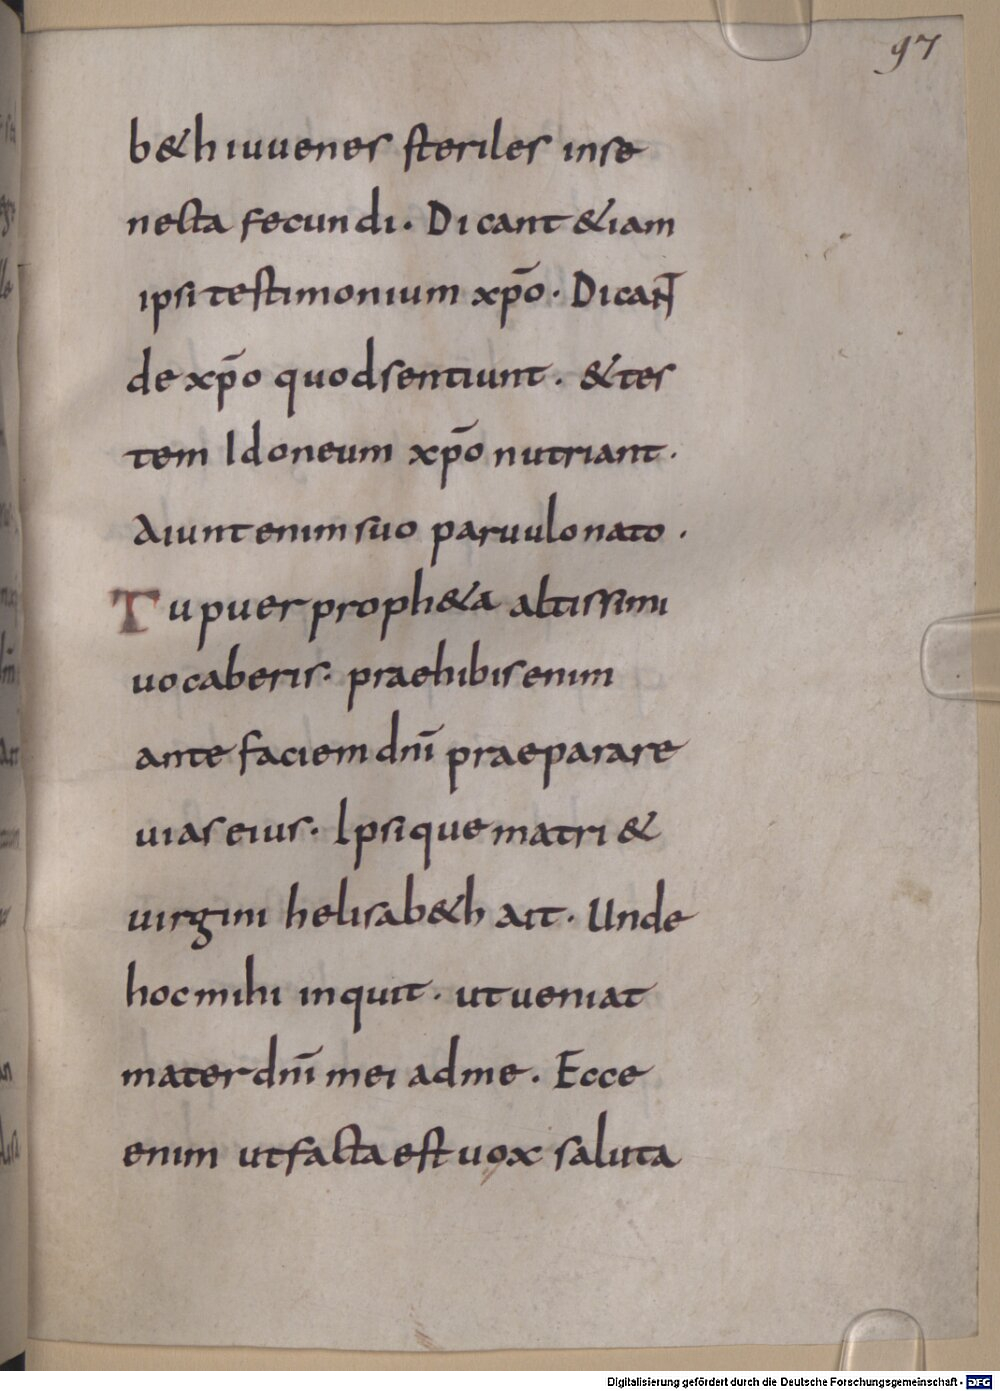 97
b&h iuuenes steriles inse
necta fecundi. Dicant &iam
ipsi testimonium xp̄o. Dicant
de xp̄o quod sentiunt. & tes
tem Idoneum xp̄o nutriant.
Aiunt enim suo paruulo nato.
Tu puer proph&a altissimi
uocaberis. praehibis enim
ante faciem dn̄i praeparare
uias eius. Ipsique matri &
uirgini helisab&h ait. Unde
hoc mihi inquit. ut ueniat
mater dn̄i mei ad me. Ecce
enim ut facta est uox saluta
Digitalisierung gefördert durch die Deutsche Forschungsgemeinschaft - DFG